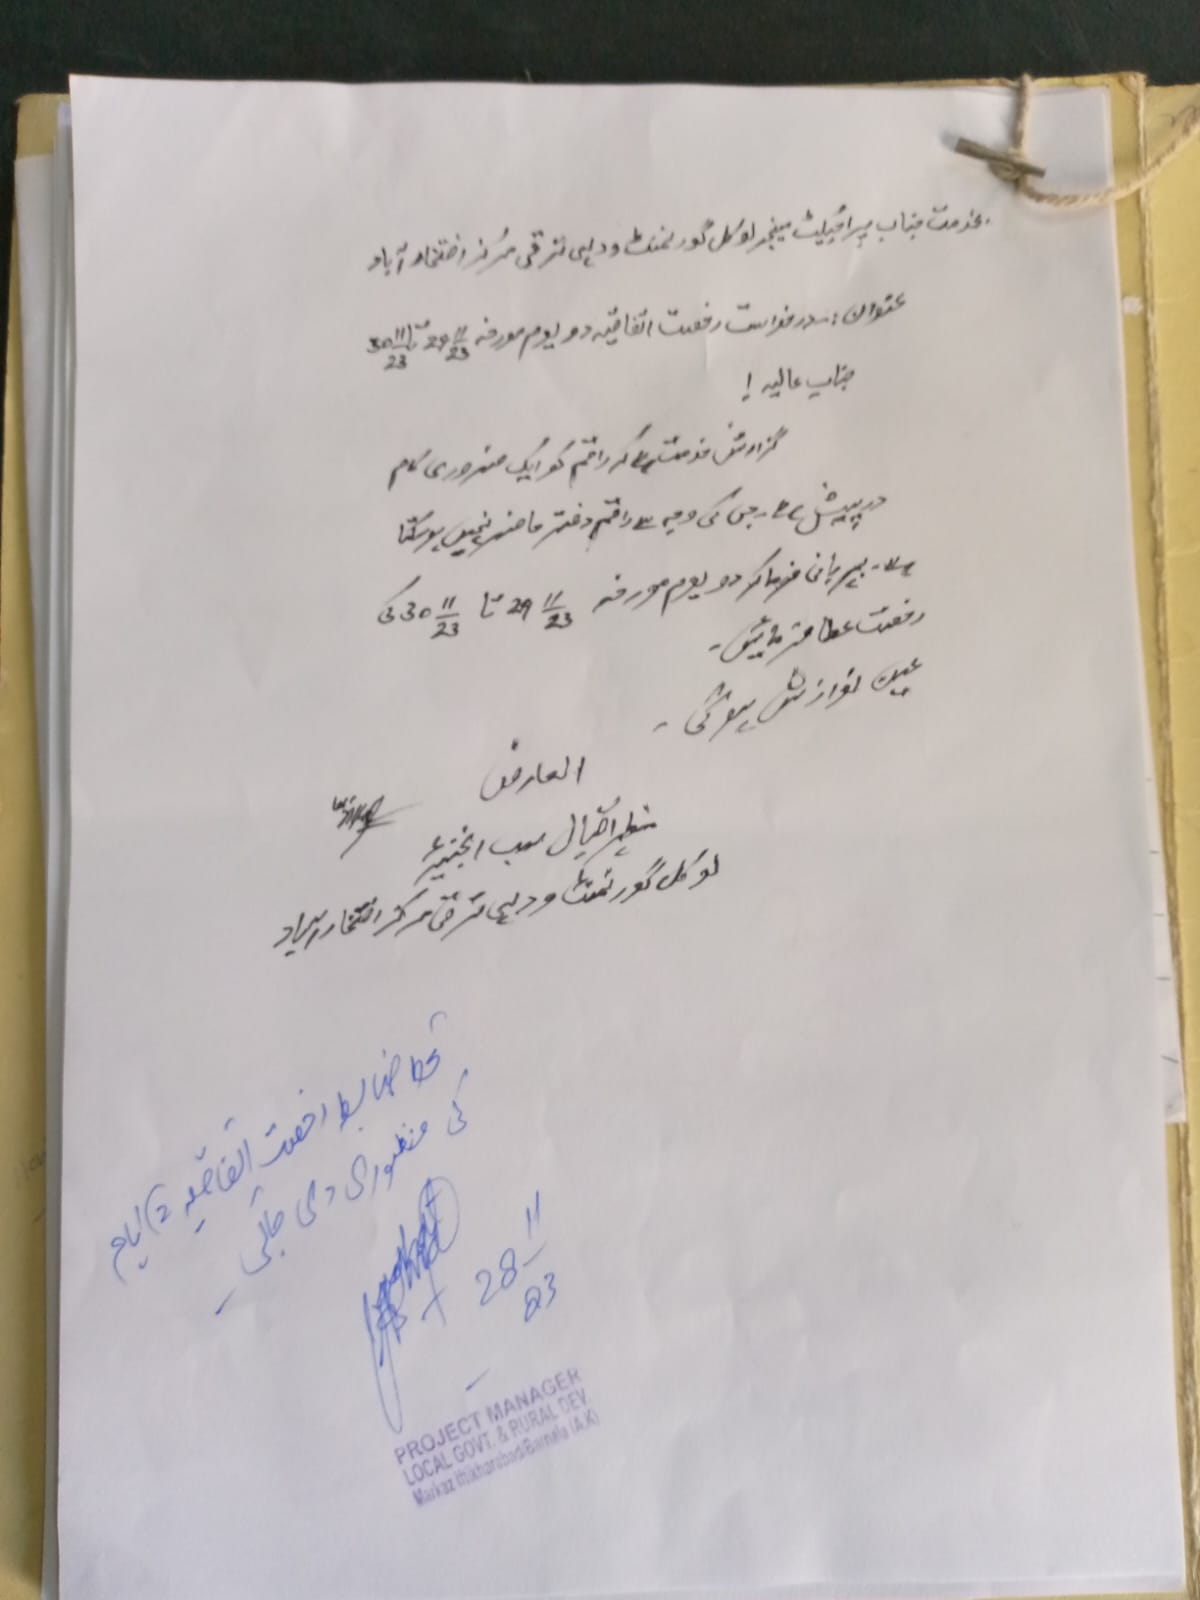 بخدمت جناب پراجیکٹ مینجر لوکل گورنمنٹ و دیہی ترقی مرکز افتخار آباد
عنوان :۔ درخواست رخصت اتفاقیہ دو یوم مورخہ 29 11/23 تا 30 11/23
جناب عالیہ !
گزارش خدمت ہے کہ راقم کو ایک ضروری کام
در پیش ہے۔ جس کی وجہ سے راقم دفتر حاضر نہیں ہو سکتا
ہے۔ مہربانی فرما کر دو یوم مورخہ 29 11/23 تا 30 11/23 کی
رخصت عطا فرمائیں۔
عین نوازش ہو گی۔
العارض
اقبال سب انجنیئر
لوکل گورنمنٹ و دیہی ترقی مرکز افتخار آباد
ضابطہ رخصت اتفاقیہ 2 ایام
کی منظوری دی جاتی
28 11/23
PROJECT MANAGER
LOCAL GOVT. & RURAL DEV.
Markaz Iftikharabad Barnala (A.K)